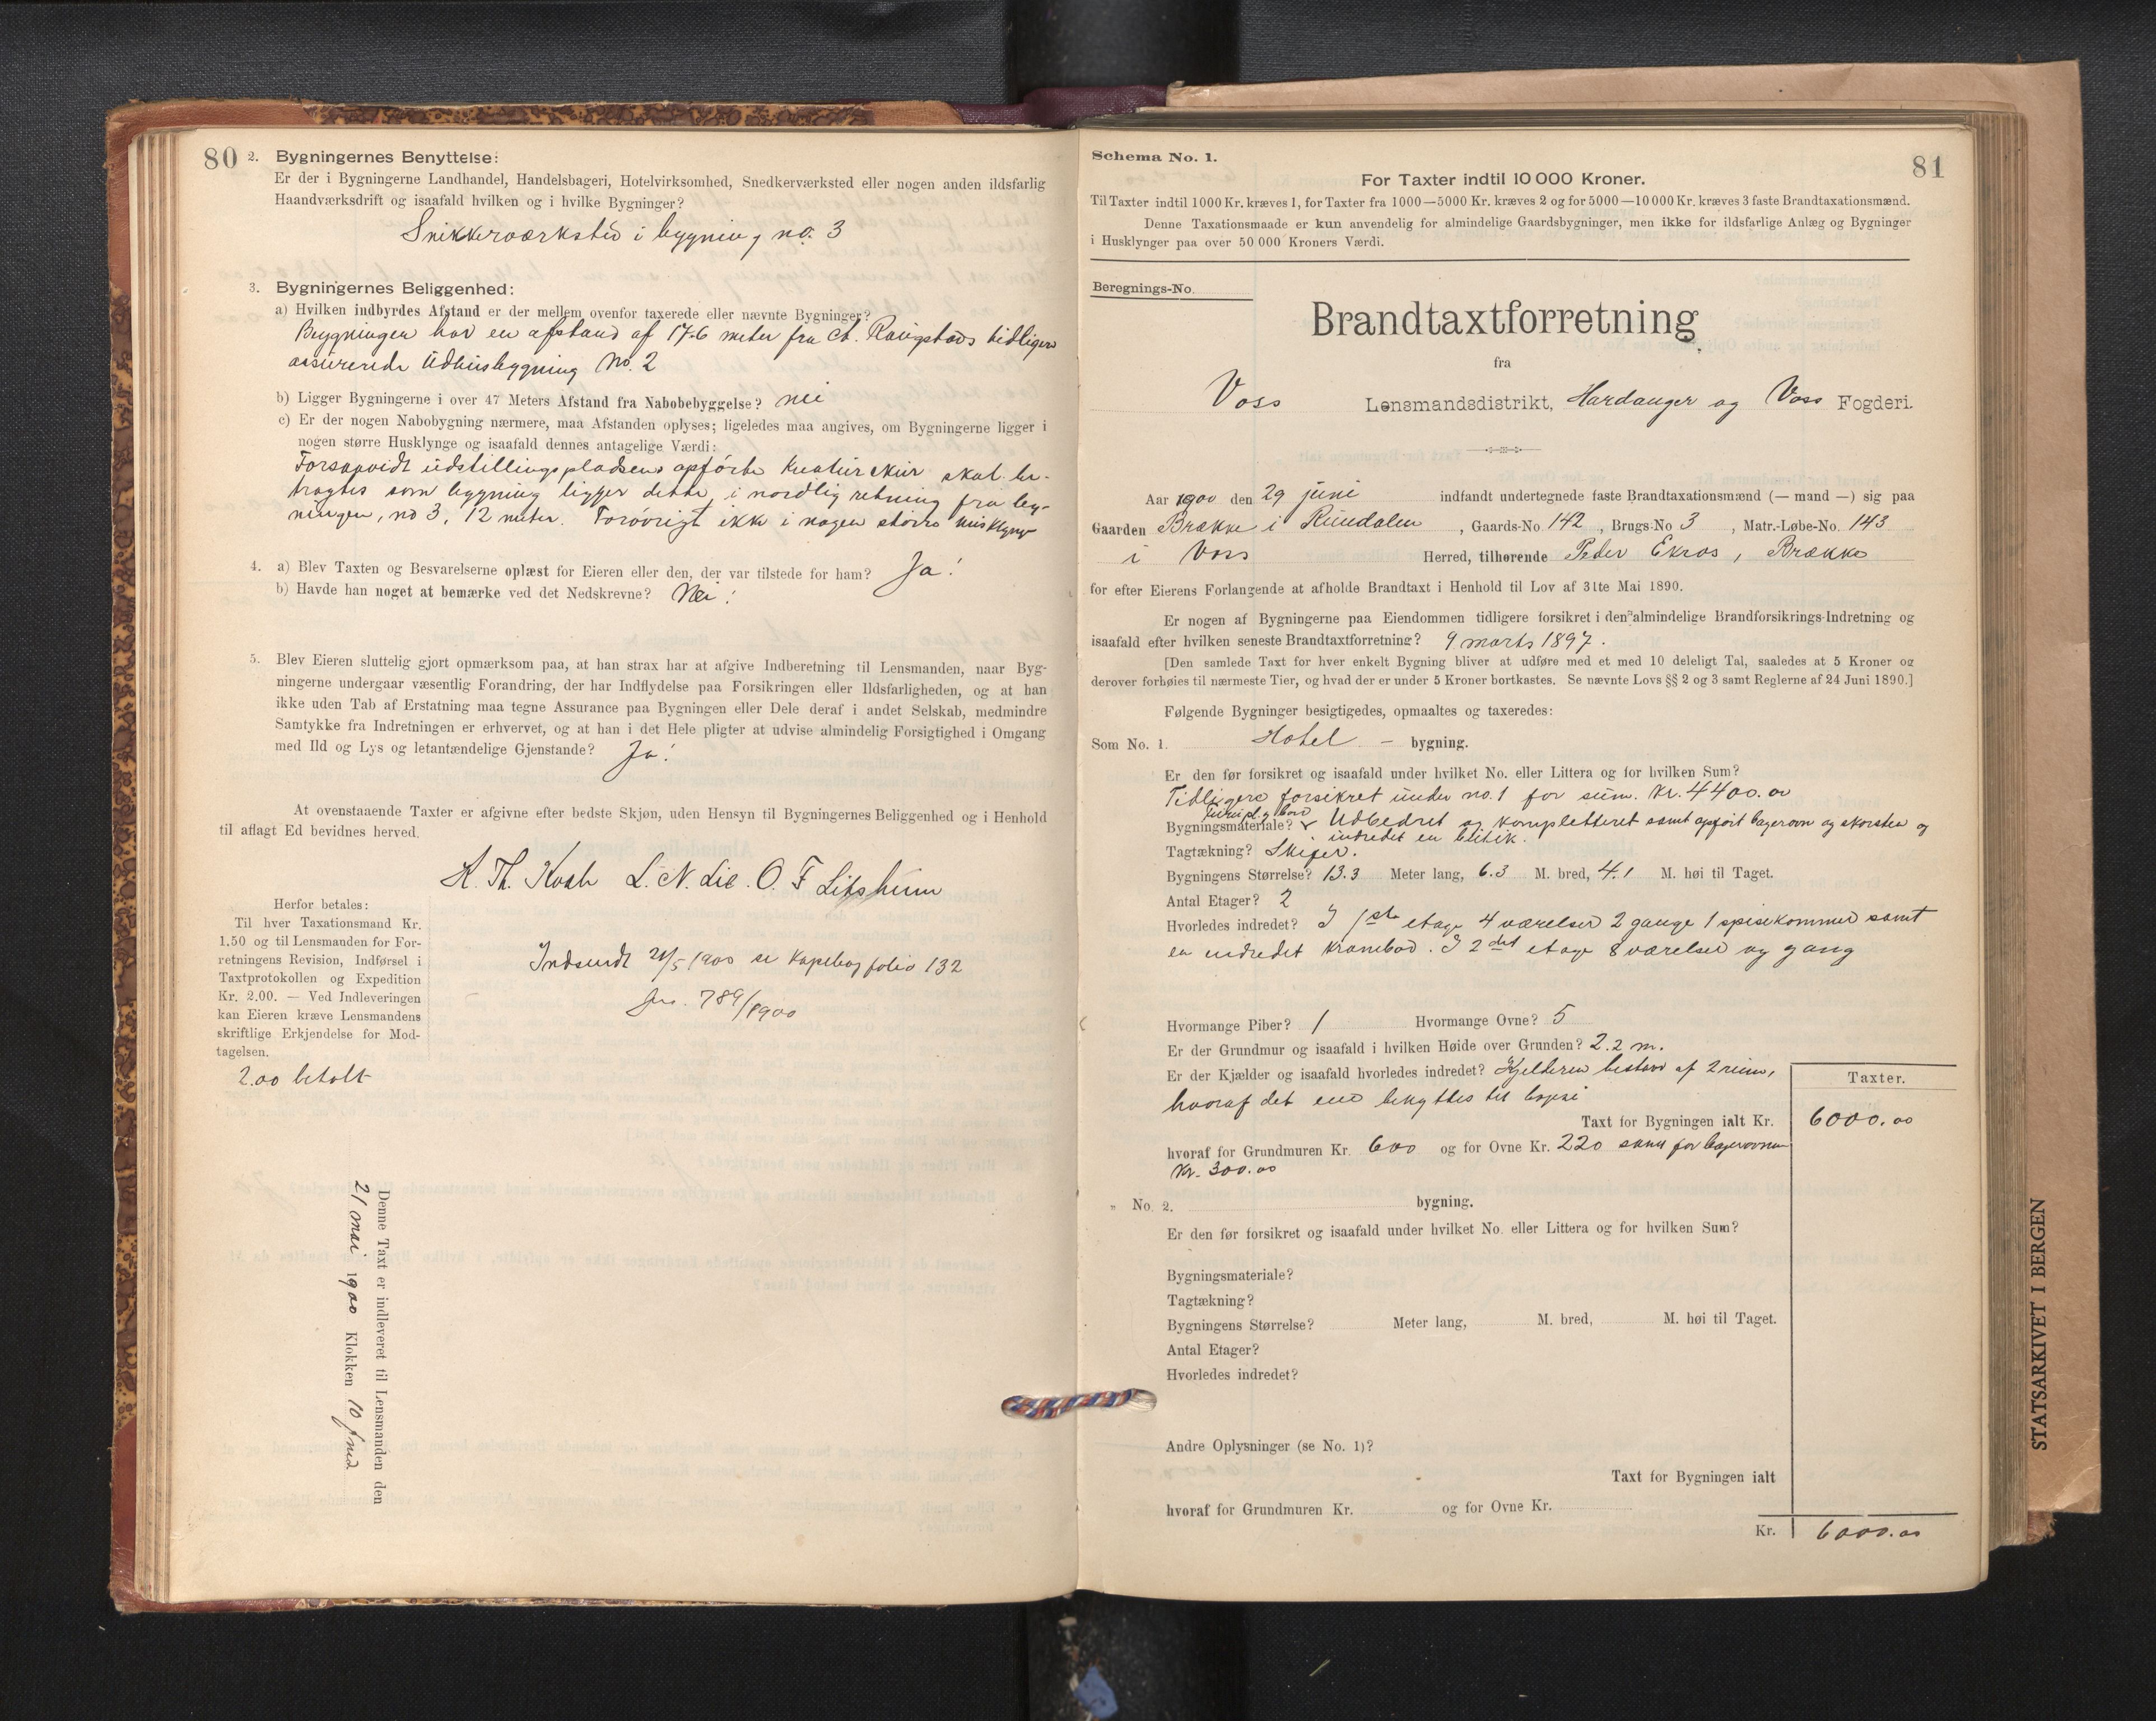 80
2. Bygningernes Benyttelse:
Er der i Bygningerne Landhandel, Handelsbageri, Hotelvirksomhed, Snedkerværksted eller nogen anden ildsfarlig
Haandværksdrift og isaafald hvilken og i hvilke Bygninger?
Snikkerværksted i bygning no. 3
3. Bygningernes Beliggenhed:
a) Hvilken indbyrdes Afstand er der mellem ovenfor taxerede eller nævnte Bygninger?
Bygningen har en afstand af 17.6 meter fra tidligere
assurerede Udhusbygning No. 2
b) Ligger Bygningerne i over 47 Meters Afstand fra Nabobebyggelse? nei
c) Er der nogen Nabobygning nærmere, maa Afstanden oplyses; ligeledes maa angives, om Bygningerne ligger i
nogen større Husklynge og isaafald dennes antagelige Værdi:
Forsaavidt udstillingspladsens opførte Kreaturskur skal be-
tragtes som bygning ligger dette, i nordlig retning fra byg-
ningen, no 3, 12 meter. Forøvrigt ikke i nogen større husklynge
4. a) Blev Taxten og Besvarelserne oplæst for Eieren eller den, der var tilstede for ham? Ja!
b) Havde han noget at bemærke ved det Nedskrevne? Nei!
5. Blev Eieren sluttelig gjort opmærksom paa, at han strax har at afgive Indberetning til Lensmanden, naar Byg-
ningerne undergaar væsentlig Forandring, der har Indflydelse paa Forsikringen eller Ildsfarligheden, og at han
ikke uden Tab af Erstatning maa tegne Assurance paa Bygningen eller Dele deraf i andet Selskab, medmindre
Samtykke fra Indretningen er erhvervet, og at han i det Hele pligter at udvise almindelig Forsigtighed i Omgang
med Ild og Lys og letantændelige Gjenstande? Ja!
At ovenstaaende Taxter er afgivne efter bedste Skjøn, uden Hensyn til Bygningernes Beliggenhed og i Henhold
til aflagt Ed bevidnes herved.
K. Th. L. N. Lie. O. F
Herfor betales:
Til hver Taxationsmand Kr.
1.50 og til Lensmanden for For-
retningens Revision, Indførsel i
Taxtprotokollen og Expedition
Kr. 2.00. — Ved Indleveringen
kan Eieren kræve Lensmandens
skriftlige Erkjendelse for Mod-
tagelsen.
2.00 betalt
Indsendt 21/5 1900 se Kopibog folio 132
jno. 789/1900
Denne Taxt er indleveret til Lensmanden den
21 mai 1900 Klokken 10 fmd
Schema No. 1.
81
For Taxter indtil 10 000 Kroner.
Til Taxter indtil 1000 Kr. kræves 1, for Taxter fra 1000—5000 Kr. kræves 2 og for 5000—10 000 Kr. kræves 3 faste Brandtaxationsmænd.
Denne Taxationsmaade er kun anvendelig for almindelige Gaardsbygninger, men ikke for ildsfarlige Anlæg og Bygninger
i Husklynger paa over 50 000 Kroners Værdi.
Beregnings-No.
Brandtaxtforretning
fra
Voss Lensmandsdistrikt, Hardanger og Voss Fogderi.
Aar 1900 den 29 juni indfandt undertegnede faste Brandtaxationsmænd (— mand —) sig paa
Gaarden Brække i Rundalen, Gaards-No 142, Brugs-No 3, Matr.-Løbe-No. 143
i Voss Herred, tilhørende Peder Ekros, Brække
for efter Eierens Forlangende at afholde Brandtaxt i Henhold til Lov af 31te Mai 1890.
Er nogen af Bygningerne paa Eiendommen tidligere forsikret i den almindelige Brandforsikrings-Indretning og
isaafald efter hvilken seneste Brandtaxtforretning? 9 marts 1897.
[Den samlede Taxt for hver enkelt Bygning bliver at udføre med et med 10 deleligt Tal, saaledes at 5 Kroner og
derover forhøies til nærmeste Tier, og hvad der er under 5 Kroner bortkastes. Se nævnte Lovs §§ 2 og 3 samt Reglerne af 24 Juni 1890.]
Følgende Bygninger besigtigedes, opmaaltes og taxeredes:
Som No. 1. Hotel - bygning.
Er den før forsikret og isaafald under hvilket No. eller Littera og for hvilken Sum?
Tidligere forsikret under no. 1 for sum. Kr. 4400.00
Bygningsmateriale? Udbedret og kompletteret samt opført bagerovn og skorsten og
indredet en butik.
Tagtækning? Skifer.
Bygningens Størrelse? 13.3 Meter lang, 6.3 M. bred, 4.1 M. høi til Taget.
Antal Etager? 2
Hvorledes indredet? I 1ste etage 4 værelser 2 gange 1 spisekammer samt
en indredet krambod. I 2det etage 8 værelser og gang
Hvormange Piber? 1 Hvormange Ovne? 5
Er der Grundmur og isaafald i hvilken Høide over Grunden? 2.2 m.
Er der Kjælder og isaafald hvorledes indredet? Kjelderen bestaar af 2 rum,
hvoraf det ene benyttes til
Taxter.
Taxt for Bygningen ialt Kr. 6000.00
hvoraf for Grundmuren Kr. 600 og for Ovne Kr. 220 samt for bagerovnen
Kr. 300.00
„ No. 2. bygning.
Er den før forsikret og isaafald under hvilket No. eller Littera og for hvilken Sum?
Bygningsmateriale?
Tagtækning?
Bygningens Størrelse? Meter lang, M. bred, M. høi til Taget.
Antal Etager?
Hvorledes indredet?
Andre Oplysninger (se No. 1)?
Taxt for Bygningen ialt
hvoraf for Grundmuren Kr. og for Ovne Kr.
Kr. 6000.00
STATSARKIVET I BERGEN